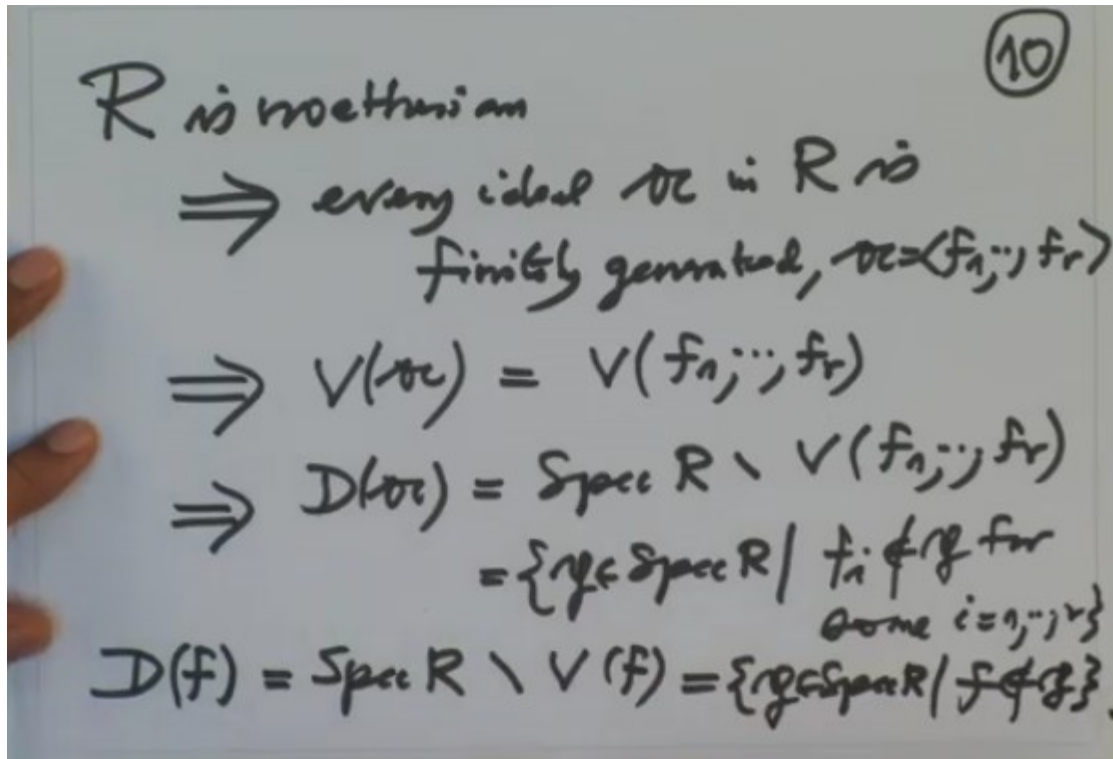 10
R is noetherian
⟹ every ideal 𝔞 in R is
finitely generated, 𝔞=<f₁,..,fᵣ>
⟹ V(𝔞) = V(f₁,..,fᵣ)
⟹ D(𝔞) = Spec R \ V(f₁,..,fᵣ)
={𝔭∈Spec R | fᵢ∉𝔭 for
some i=1,..,r}
D(f) = Spec R \ V(f) ={𝔭∈Spec R | f∉𝔭}.